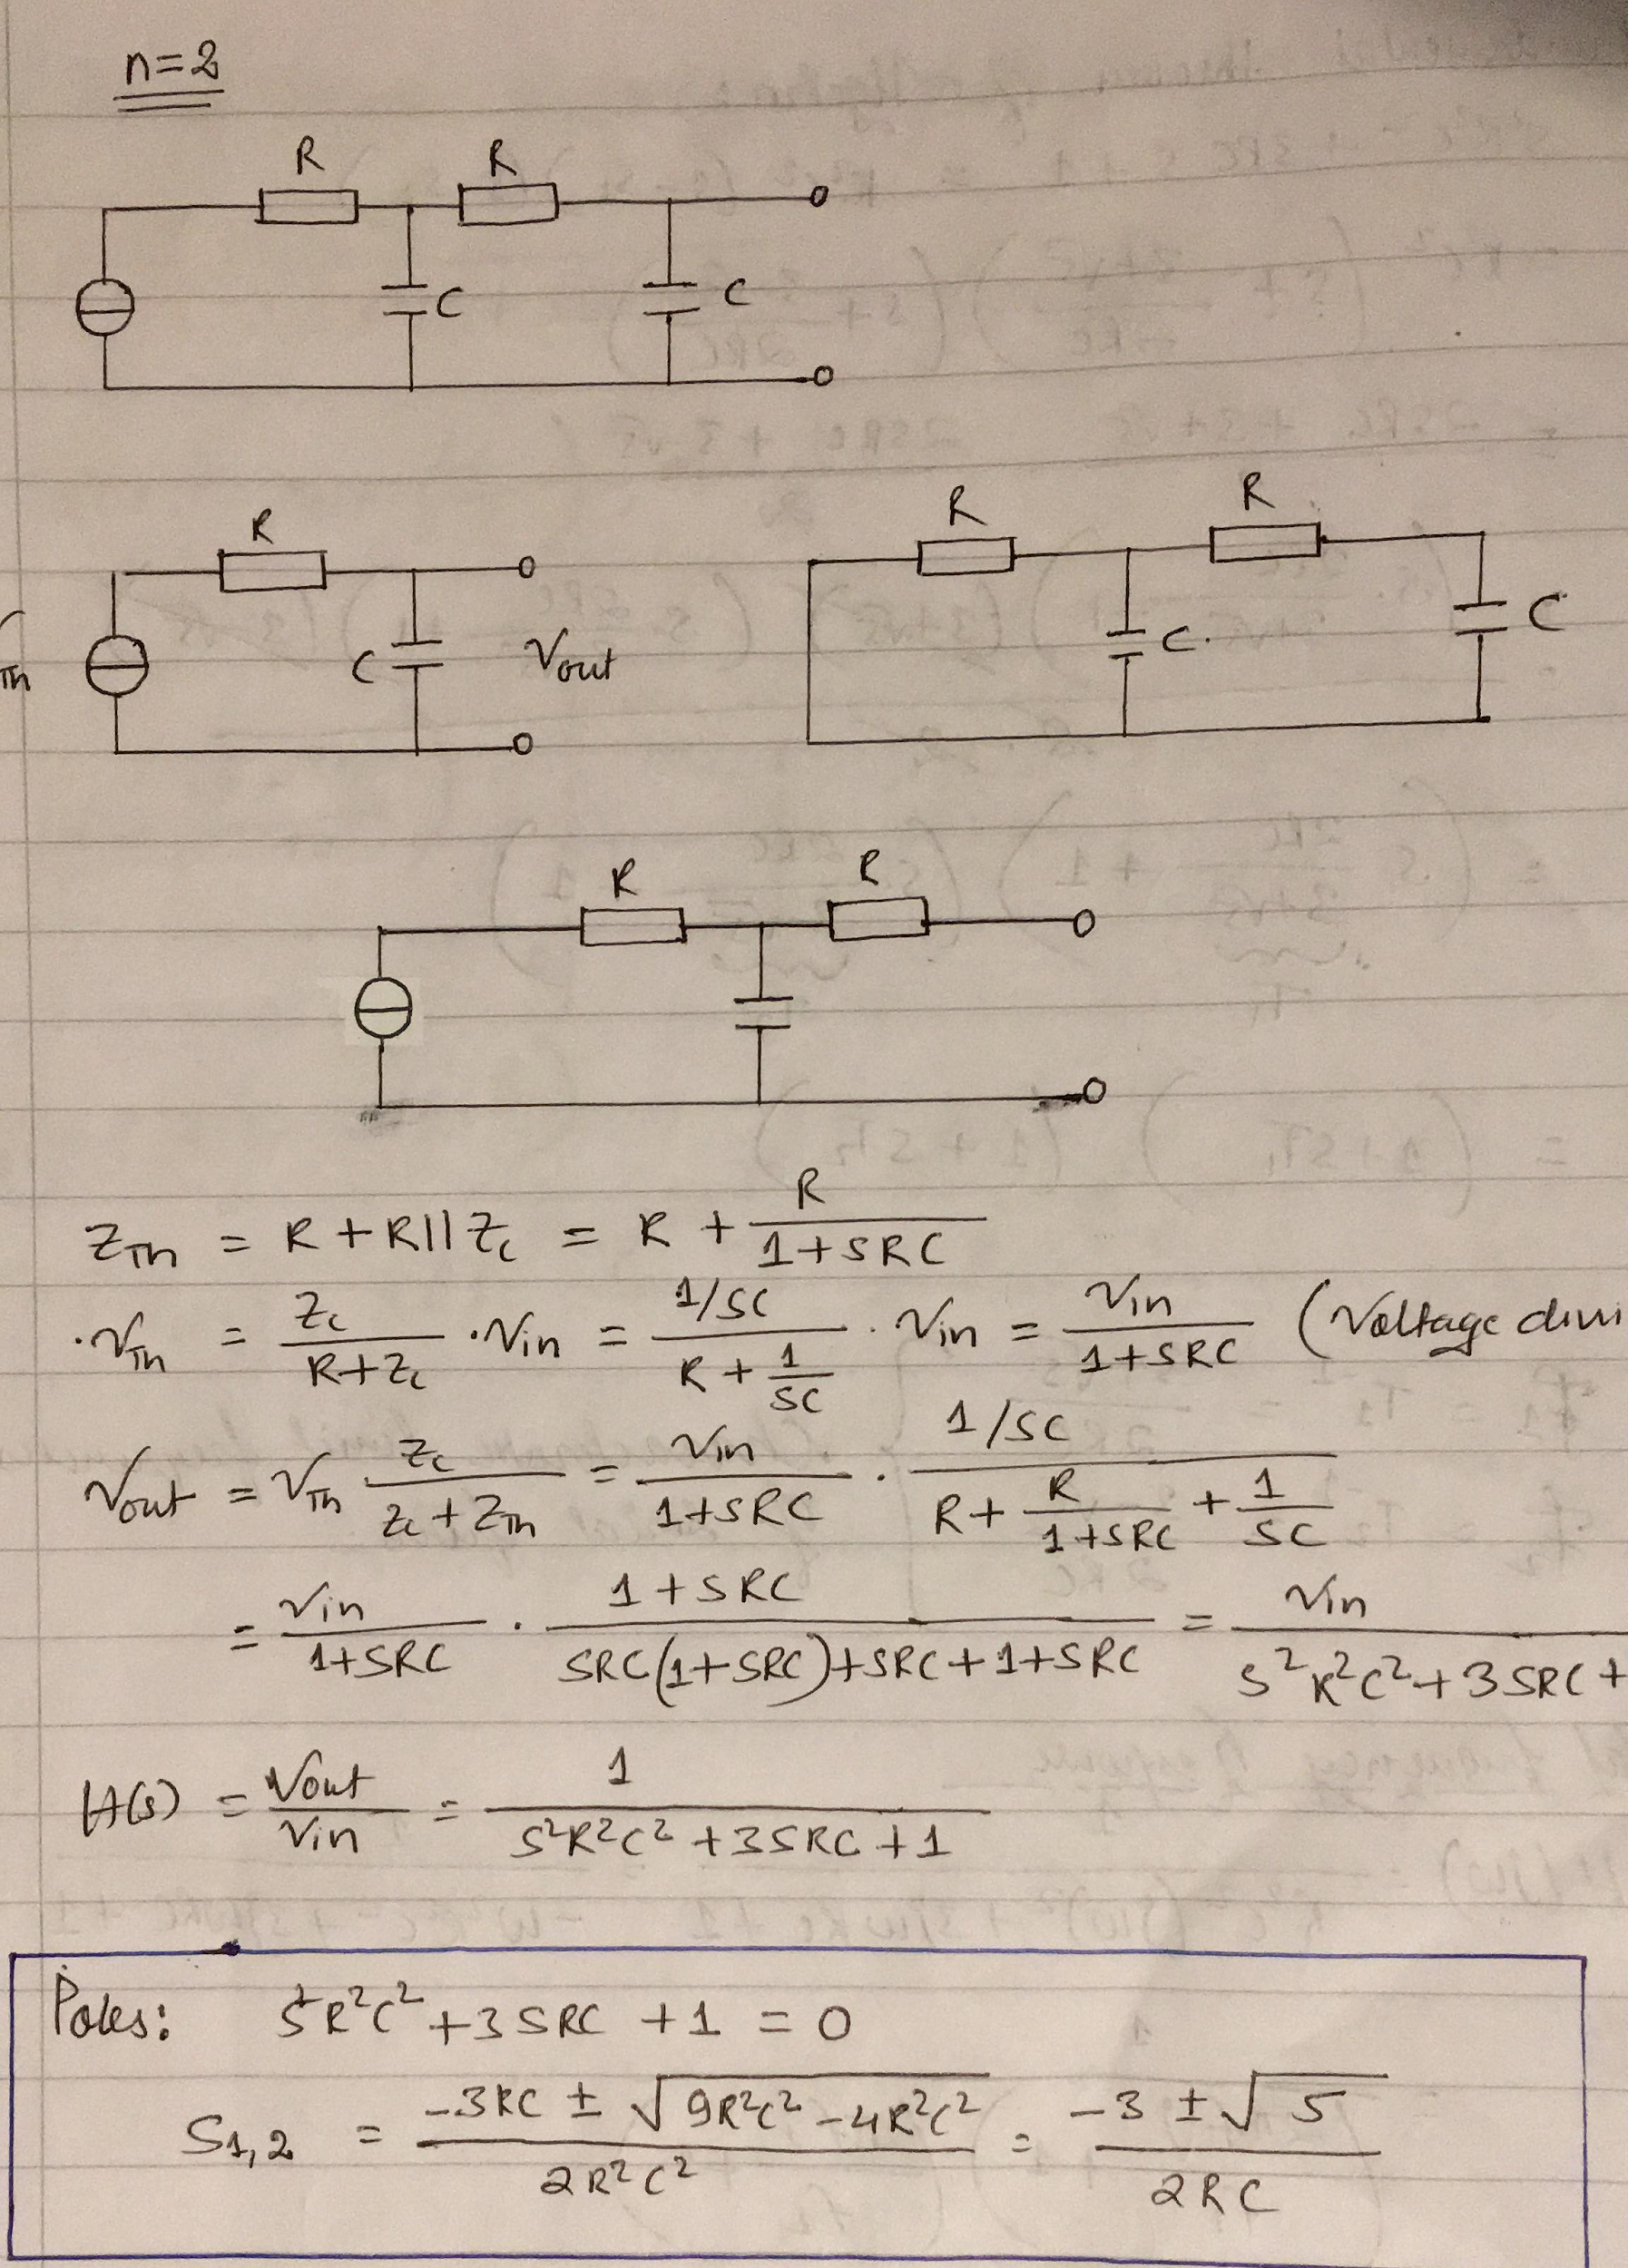 n=2
R R
C C
R R R
Th C Vout C. C
R R
Z_Th = R + R||Z_C = R + R/(1+SRC)
.V_Th = Z_C/(R+Z_C) · Vin = (1/SC)/(R + 1/SC) · Vin = Vin/(1+SRC) (Voltage divi
Vout = V_Th Z_C/(Z_C + Z_Th) = Vin/(1+SRC) · (1/SC)/(R + R/(1+SRC) + 1/SC)
= Vin/(1+SRC) · (1+SRC)/(SRC(1+SRC)+SRC+1+SRC) = Vin/(S²R²C²+3SRC+
H(s) = Vout/Vin = 1/(S²R²C²+3SRC+1)
Poles: S²R²C²+3SRC+1 = 0
S1,2 = (-3RC ± √(9R²C²-4R²C²))/(2R²C²) = (-3 ± √5)/(2RC)